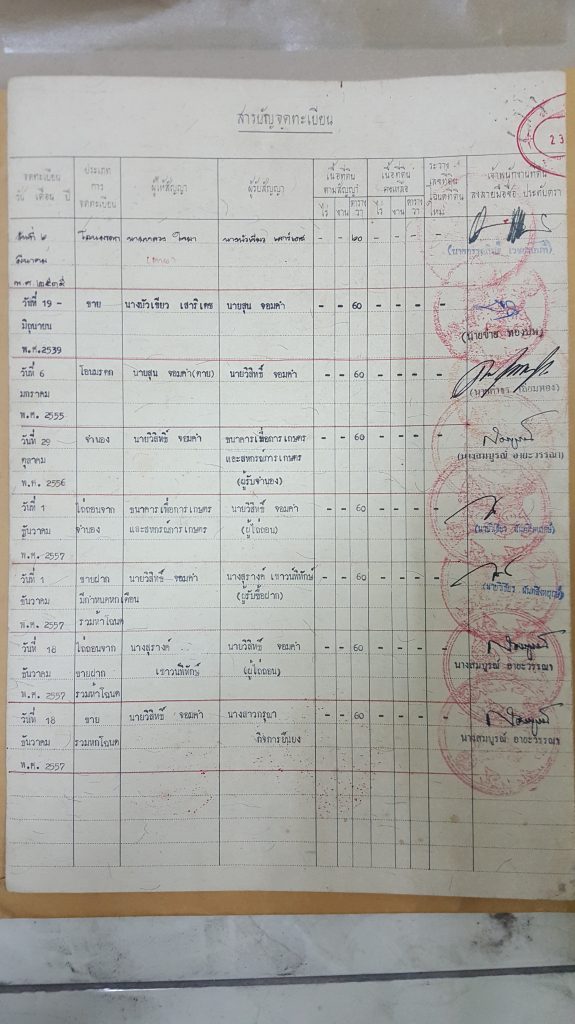 สารบัญจดทะเบียน
23
จดทะเบียน
วัน เดือน ปี
ประเภท
การ
จดทะเบียน
ผู้ให้สัญญา
ผู้รับสัญญา
เนื้อที่ดิน
ตามสัญญา
ไร่ งาน ตาราง
วา
เนื้อที่ดิน
คงเหลือ
ไร่ งาน ตาราง
วา
ระวาง
เลขที่ดิน
โฉนดที่ดิน
ใหม่
เจ้าพนักงานที่ดิน
ลงลายมือชื่อ ประทับตรา
วันที่ ๖
มีนาคม
พ.ศ. ๒๕๓๕
โอนมรดก
(ตาย)
นางบัวเขียว
- - ๖๐ - - - -
วันที่ 19 -
มิถุนายน
พ.ศ.2539
ขาย
นางบัวเขียว เสาร์เดช
นายสุน จอมคำ
- - 60 - - - -
วันที่ 6
มกราคม
พ.ศ. 2555
โอนมรดก
นายสุน จอมคำ(ตาย)
นายวิสิทธิ์ จอมคำ
- - 60 - - - -
วันที่ 29
ตุลาคม
พ.ศ. 2556
จำนอง
นายวิสิทธิ์ จอมคำ
ธนาคารเพื่อการเกษตร
และสหกรณ์การเกษตร
(ผู้รับจำนอง)
- - 60 - - - -
(นางสมบูรณ์ อายะวรรณา)
วันที่ 1
ธันวาคม
พ.ศ. 2557
ไถ่ถอนจาก
จำนอง
ธนาคารเพื่อการเกษตร
และสหกรณ์การเกษตร
นายวิสิทธิ์ จอมคำ
(ผู้ไถ่ถอน)
- - 60 - - - -
วันที่ 1
ธันวาคม
พ.ศ. 2557
ขายฝาก
มีกำหนดหกเดือน
รวมห้าโฉนด
นายวิสิทธิ์ จอมคำ
นางสุรางค์ เชาวน์พิทักษ์
(ผู้รับซื้อฝาก)
- - 60 - - - -
วันที่ 18
ธันวาคม
พ.ศ. 2557
ไถ่ถอนจาก
ขายฝาก
รวมห้าโฉนด
นางสุรางค์
เชาวน์พิทักษ์
นายวิสิทธิ์ จอมคำ
(ผู้ไถ่ถอน)
- - 60 - - - -
นางสมบูรณ์ อายะวรรณา
วันที่ 18
ธันวาคม
พ.ศ. 2557
ขาย
รวมหกโฉนด
นายวิสิทธิ์ จอมคำ
นางสาวกรุณา
กิจการยืนยง
- - 60 - - - -
นางสมบูรณ์ อายะวรรณา